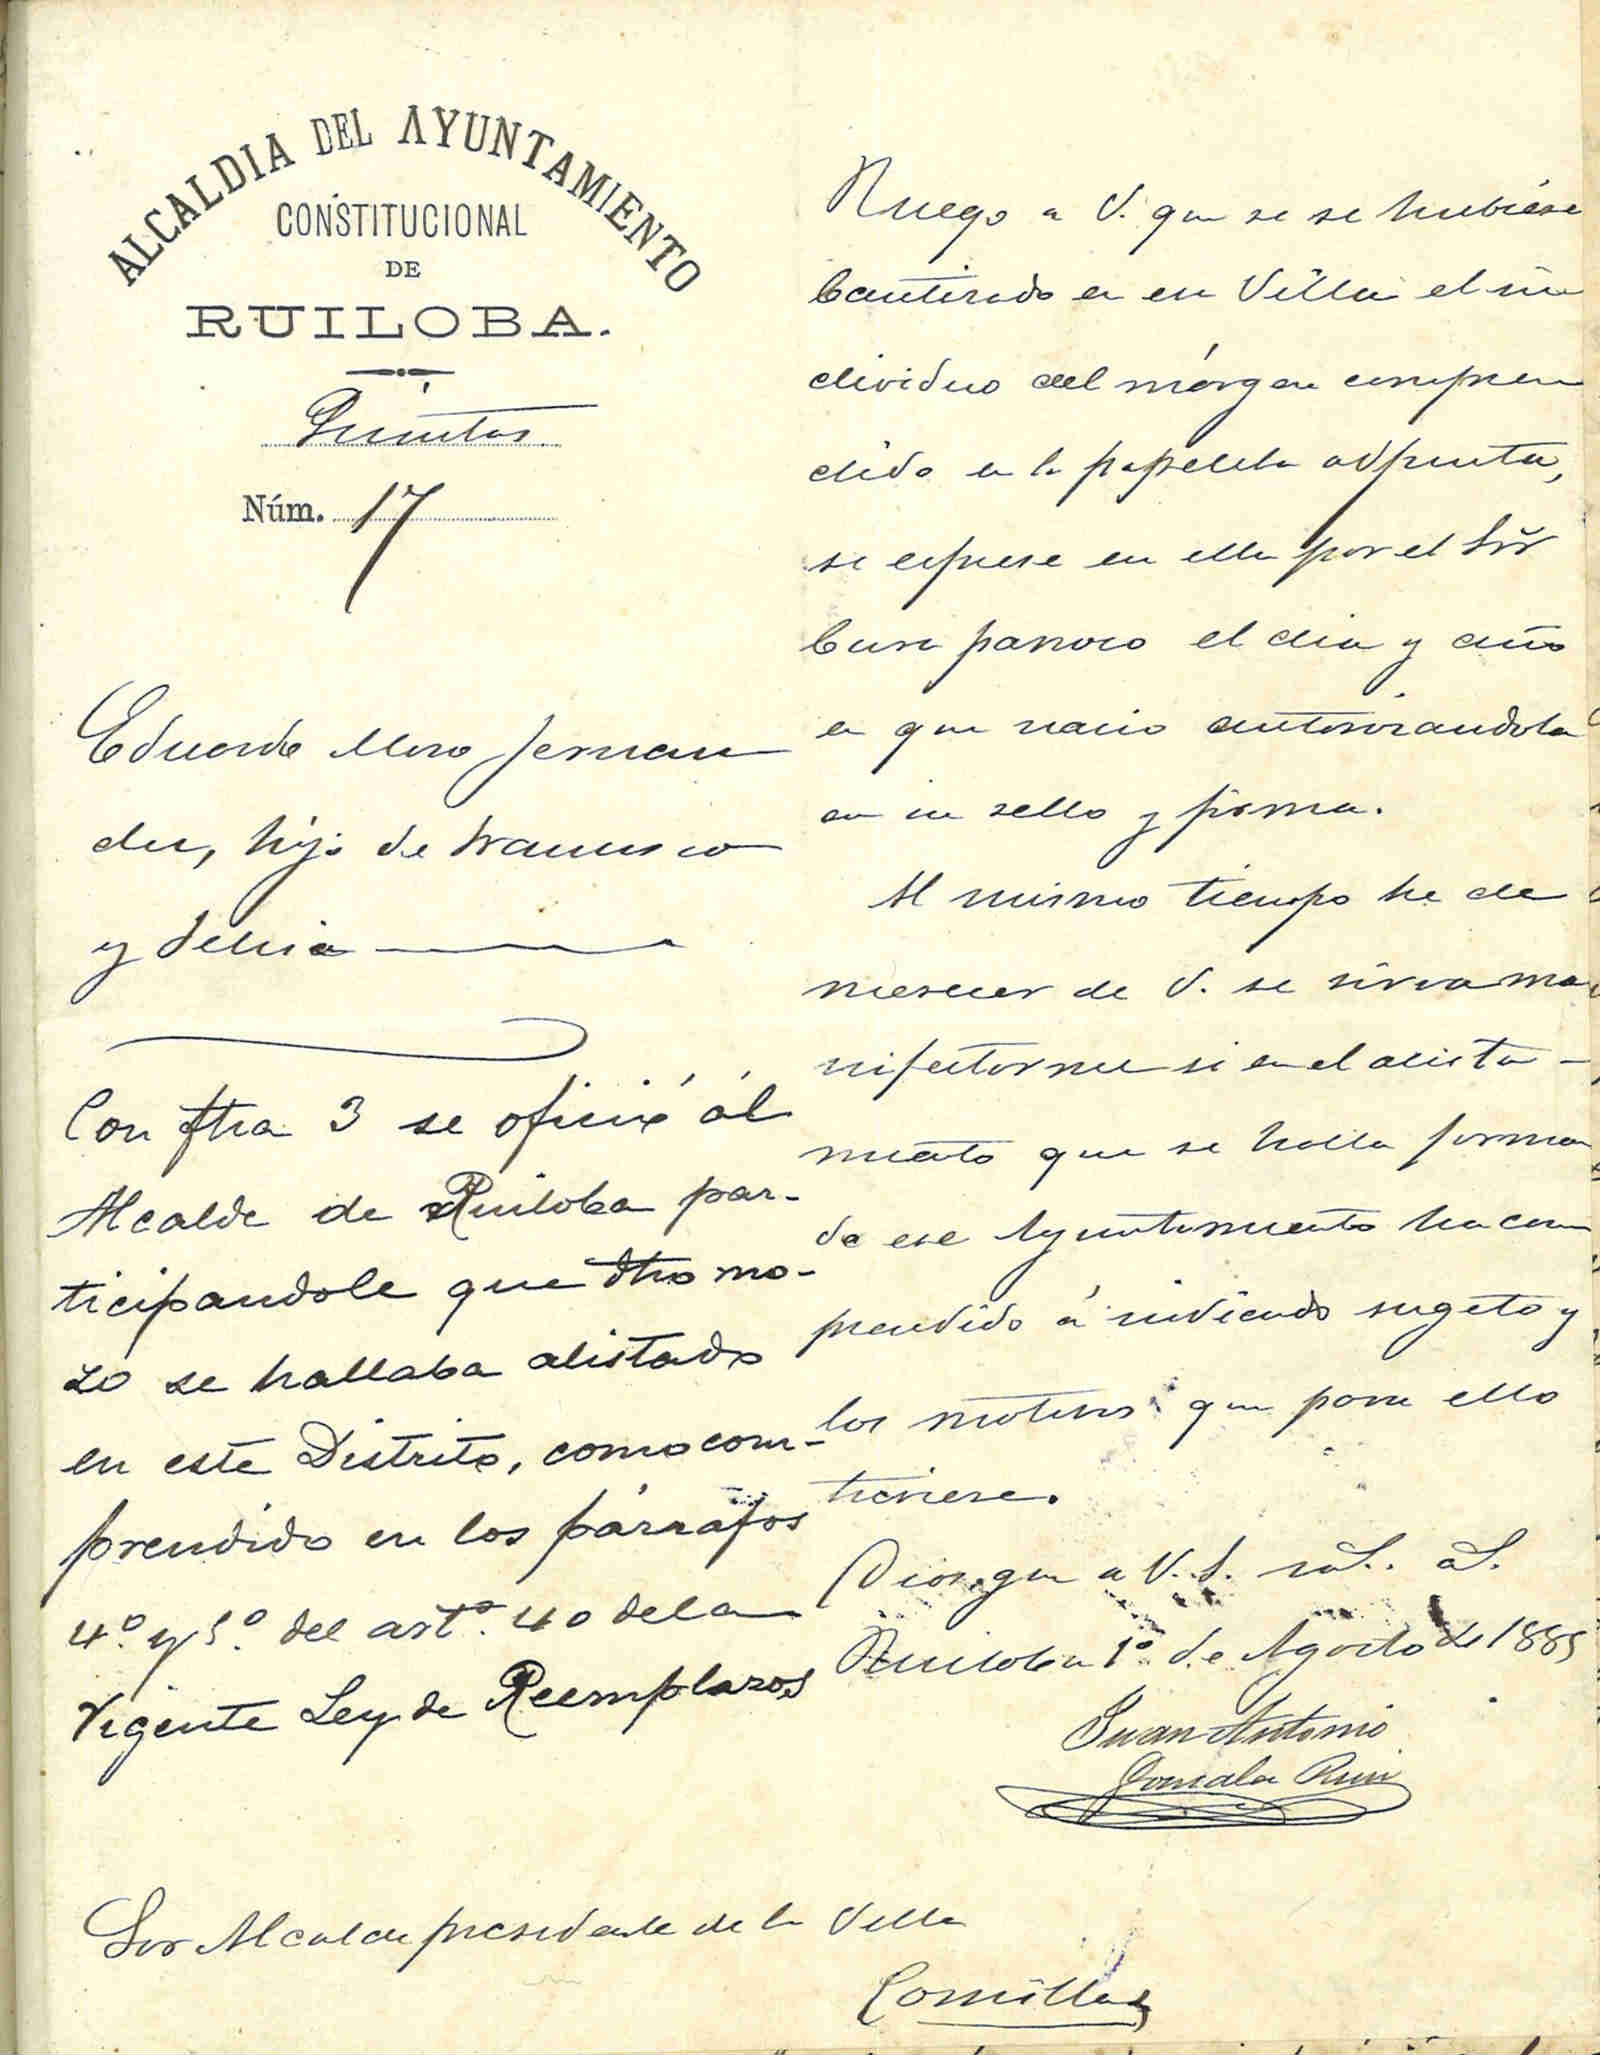 ALCALDIA DEL AYUNTAMIENTO
CONSTITUCIONAL
DE
RUILOBA.
Quintas
Núm. 17
Eduardo Mora Fernan
dez, hijo de Francisco
y Delia
Con fha 3 se ofició al
Alcalde de Ruiloba par-
ticipandole que dho mo-
zo se hallaba alistado
en este Distrito, como com-
prendido en los párrafos
4.º y 5.º del artº. 40 de la
Vigente Ley de Reemplazos
Ruego a V. que si se hubiese
bautizado en esa Villa el in
dividuo del márgen compren
dido en la papeleta adjunta,
se esprese en ella por el Sor
Cura parroco el dia y año
en que nacio autorizandola
con su sello y firma.
Al mismo tiempo he de
merecer de V. se sirva ma
nifestarme si en el alista-
miento que se halla forma
do ese Ayuntamiento ha com
prendido á indicado sugeto y
los motivos que para ello
tuviese.
Dios gue a V. S. ms. as.
Ruiloba 1º de Agosto de 1885
Juan Antonio
Gonzalez Ruiz
Sor Alcalde presidente de la Villa
Comillas